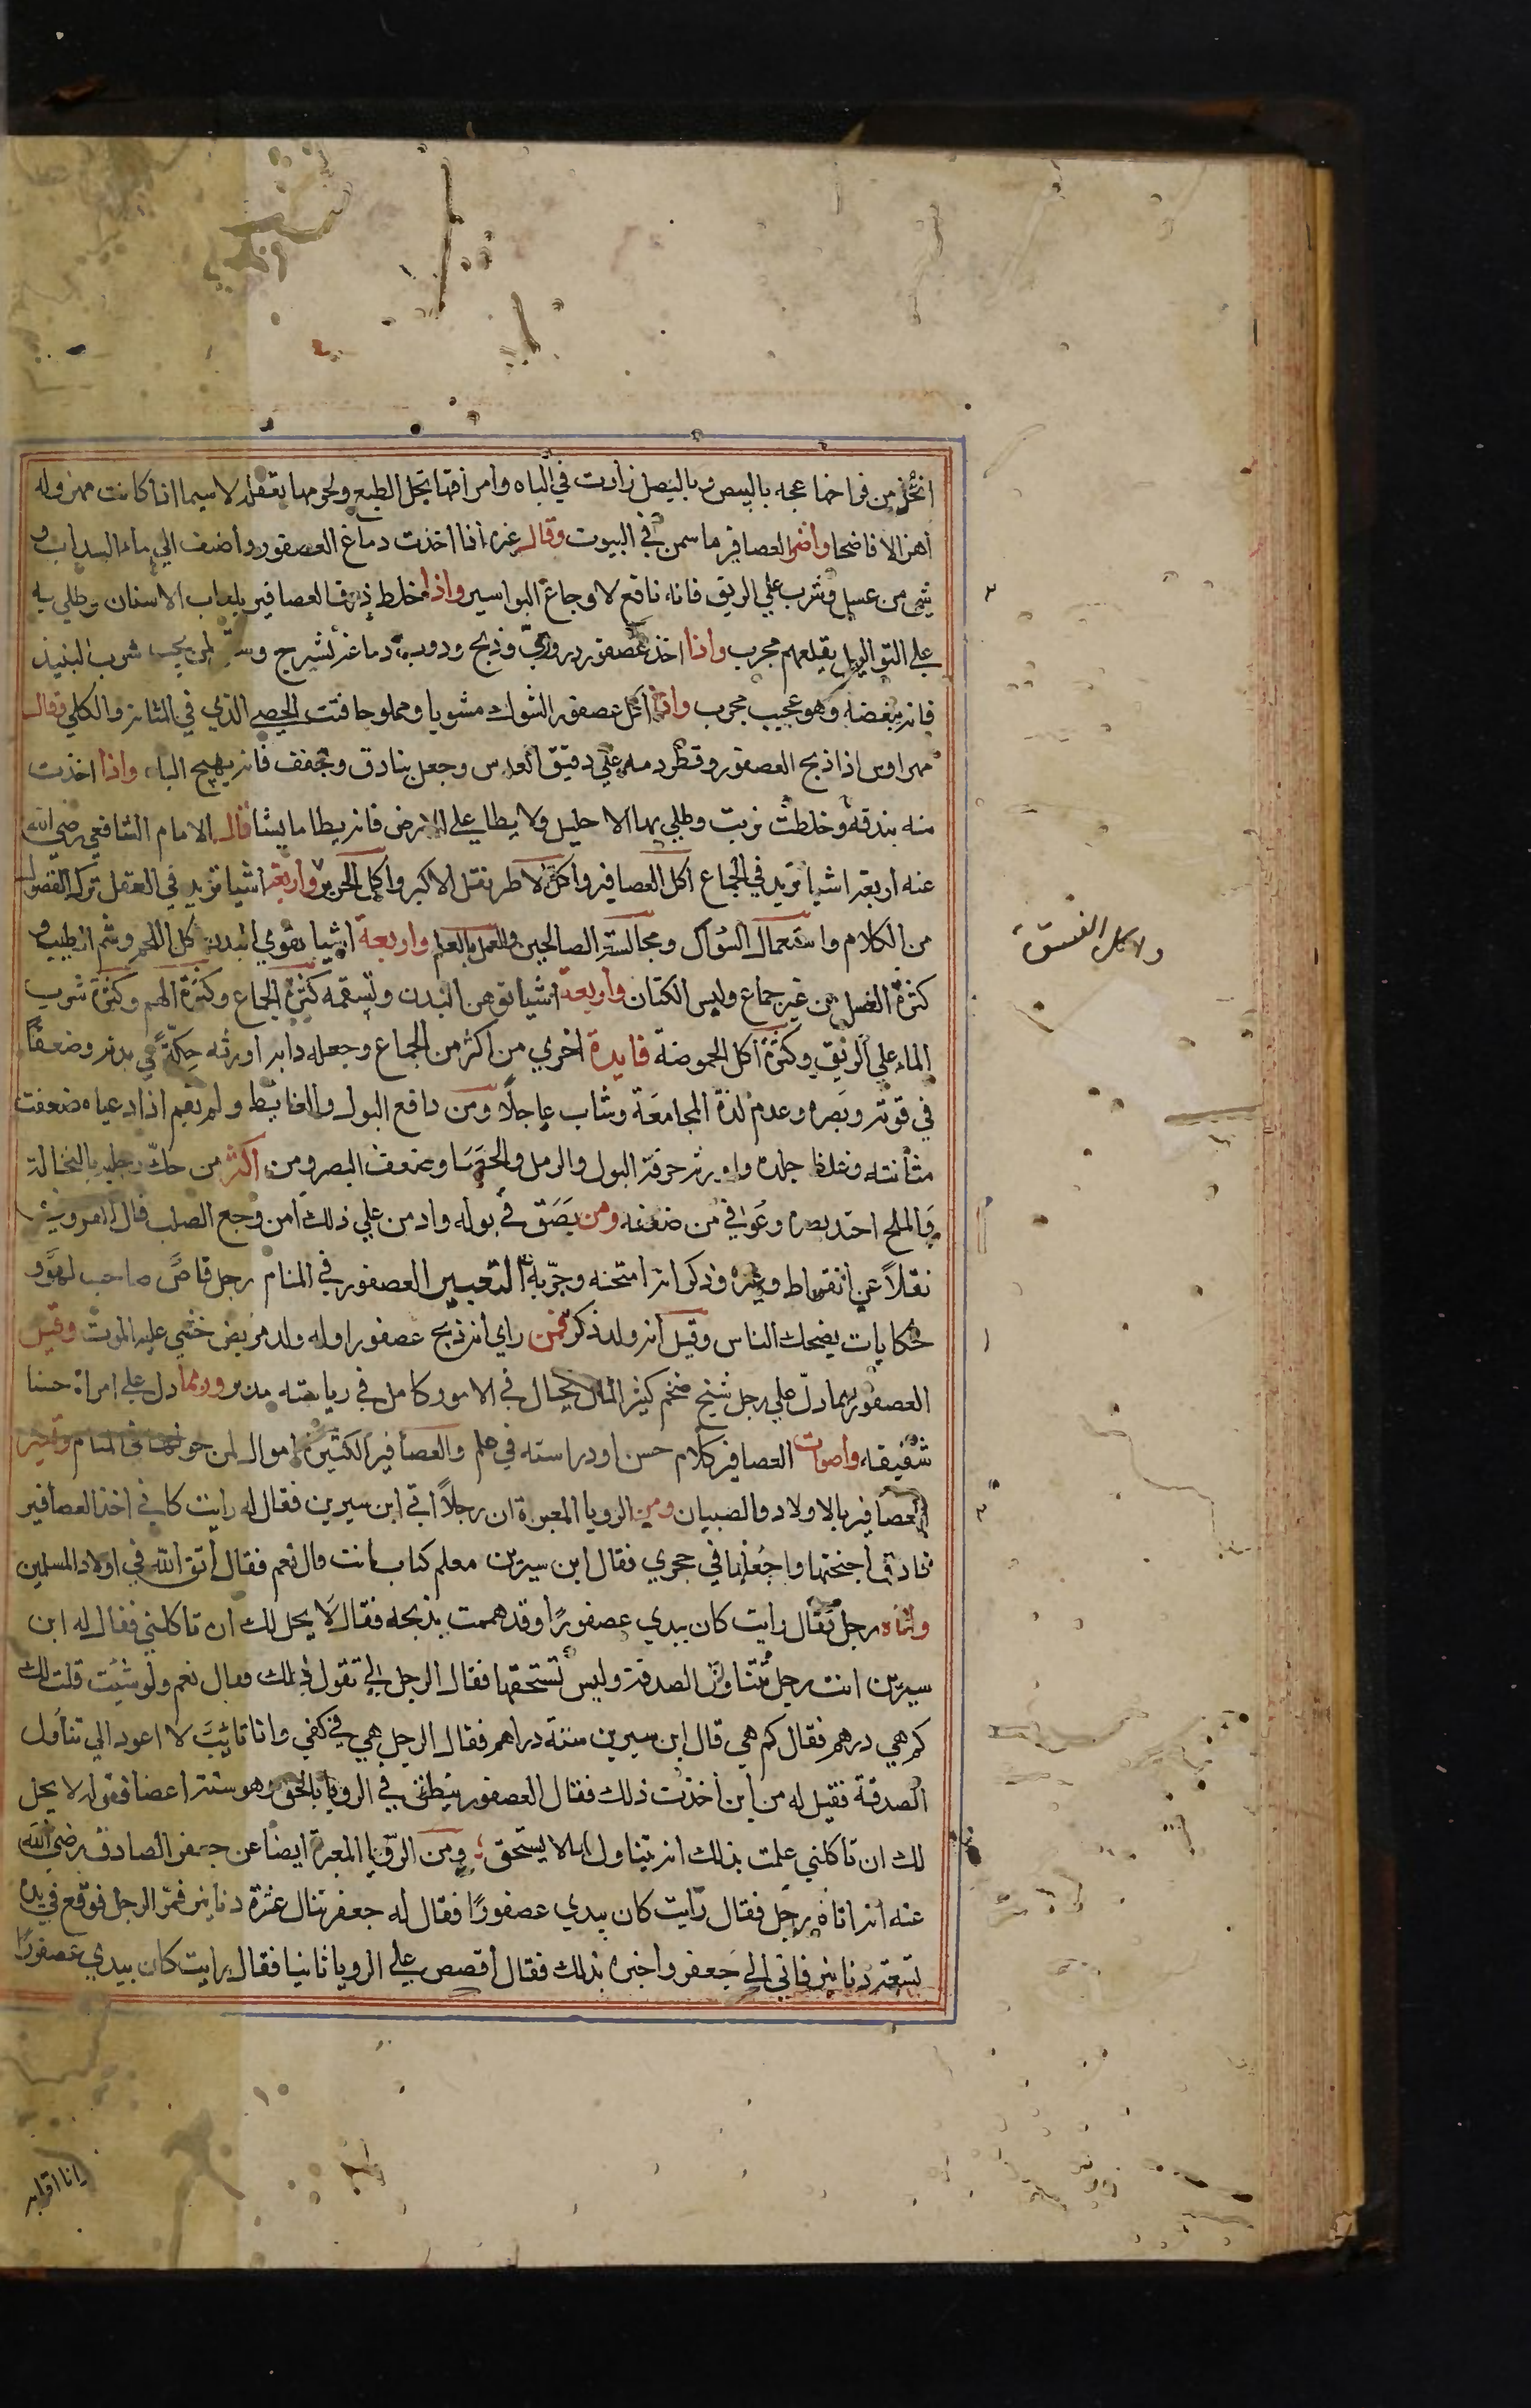 اتخذ من فراخها عجه بالبيض وبالبصل زادت في الباه وامراقها تحل الطبع ولحومها تعقله لا سيما اذا كانت مهزوله
اهزالا فاضحا واضر العصافير ما سمن في البيوت وقال غيره اذا اخذت دماغ العصفور واضيف الي ماء السداب و
شي من عسل وشرب علي الريق فانه نافع لاوجاع البواسير واذا خلط ذرق العصافير بلعاب الانسان وطلي به
علي الثواليل يقلعهم مجرب واذا اخذ عصفور دوري وذبح ودوب دماغه بشيرج وسقي لمن يحب شرب النبيذ
فانه يبغضه وهو عجيب مجرب واذا اكل عصفور الشوك مشويا ومملوحا فتت الحصي الذي في المثانه والكلي وقال
مهراوس اذا ذبح العصفور وقطر دمه علي دقيق العدس وجعل بنادق وتجفف فانه يهيج الباه واذا اخذت
منه بندقة وخلطت بزيت وطلي بها الاحليل ولا يطا علي الارض فانه يطا ما يشا قال الامام الشافعي رضي الله
عنه اربعة اشيا تزيد في الجماع اكل العصافير واكل الاطريفل الاكبر واكل الجرجير واربعة اشيا تزيد في العقل ترك الفضول
من الكلام واستعمال السواك ومجالسة الصالحين والعمل بالعلم واربعة اشيا يقوي البدن اكل اللحم وشم الطيب و
كثرة الغسل من غير جماع ولبس الكتان واربعة اشيا توهن البدن وتسقمه كثرة الجماع وكثرة الهم وكثرة شرب
الماء علي الريق وكثرة اكل الحموضة فايدة اخري من اكثر من الجماع وجعله دابه اورثه حِكّةً في بدنه وضعفًا
في قوته وبصره وعدم لذة المجامعة وشاب عاجلًا ومن دافع البول والغايط ولم يقم اذا ادعياه ضعفت
مثانته وغلظ جلده واورثه حرقة البول والرمل والحصا وضعف البصر ومن اكثر من حك رجليه بالنخالة
والملح احتد بصره وعوفي من ضعفه ومن بصق في بوله وادمن علي ذلك امن وجع الصلب قال القزويني
نقلًا عن انقراط وغيره وذكر انه امتحنه وجرّبه التعبير العصفور في المنام رجل قاص صاحب لهو و
حكايات يضحك الناس وقيل انه ولد ذكر فمن راي انه ذبح عصفورا وله ولد مريض خشي عليه الموت وقيل
العصفور ربما دل علي رجل شيخ ضخم كثير المال يحتال في الامور كامل في رياسته مدبر وربما دل علي امراة حسنا
شفيقه واصوات العصافير كلام حسن او دراسته في علم والعصافير الكثيرة اموال لمن حوتها في المنام وتعبر
العصافير بالاولاد والصبيان ومن الرويا المعبرة ان رجلًا اتي ابن سيرين فقال له رايت كاني اخذ العصافير
فادق اجنحتها واجعلها في حجري فقال ابن سيرين معلم كتاب انت قال نعم فقال اتق الله في اولاد المسلمين
واتاه رجل فقال رايت كان بيدي عصفورًا وقد هممت بذبحه فقال لا يحل لك ان تاكلني فقال له ابن
سيرين انت رجل تتناول الصدقة وليس تستحقها فقال الرجل الي تقول ذلك فقال نعم ولو شئت قلت لك
كم هي درهم فقال كم هي قال ابن سيرين ستة دراهم فقال الرجل هي في كفي وانا تايب لا اعود الي تناول
الصدقة فقيل له من اين اخذت ذلك فقال العصفور ينطق في الرويا بالحق وهو ستة اعضا فقوله لا يحل
لك ان تاكلني علمت بذلك انه يتناول ما لا يستحق ومن الرويا المعبرة ايضا عن جعفر الصادق رضي الله
عنه انه اتاه رجل فقال رايت كان بيدي عصفورًا فقال له جعفر تنال عشرة دنانير فمر الرجل فوقع في يده
تسعة دنانير فاتي الي جعفر واخبره بذلك فقال اقصص علي الرويا ثانيا فقال رايت كان بيدي عصفورًا
واكل الفستق
وانا اقلبه